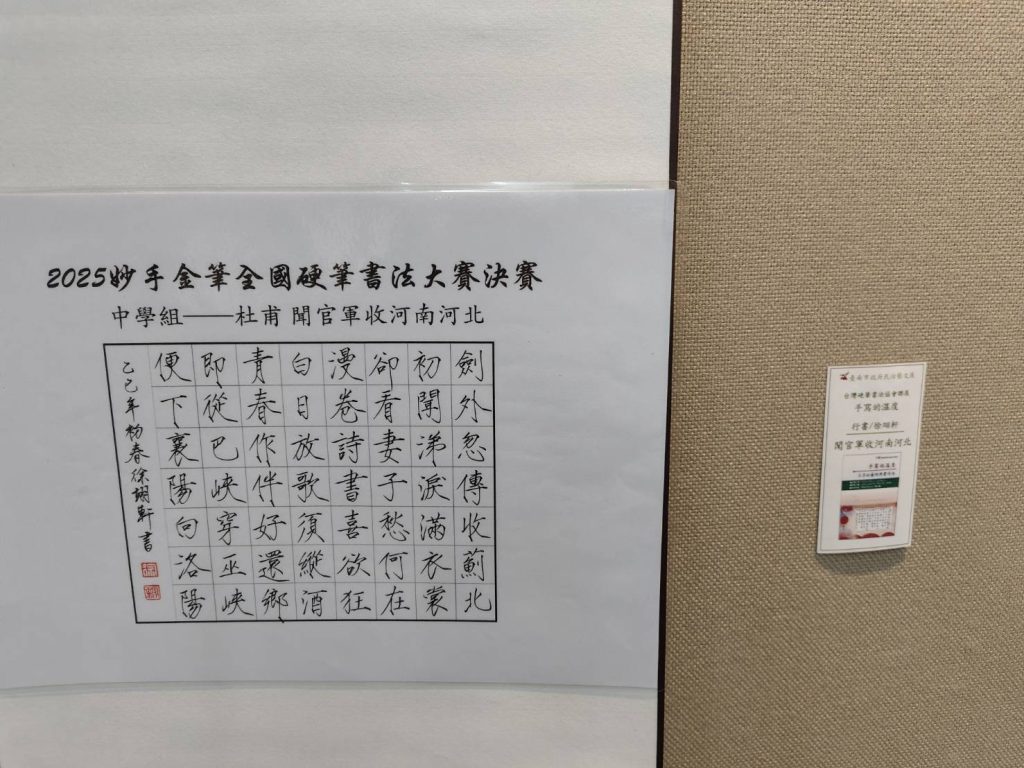 2025妙手金筆全國硬筆書法大賽決賽
中學組——杜甫 聞官軍收河南河北
劍外忽傳收薊北
初聞涕淚滿衣裳
卻看妻子愁何在
漫卷詩書喜欲狂
白日放歌須縱酒
青春作伴好還鄉
即從巴峽穿巫峽
便下襄陽向洛陽
乙巳年初春徐翊軒書
臺南市政府民治藝文展
台灣硬筆書法協會聯展
手寫的溫度
行書/徐翊軒
聞官軍收河南河北
手寫的溫度